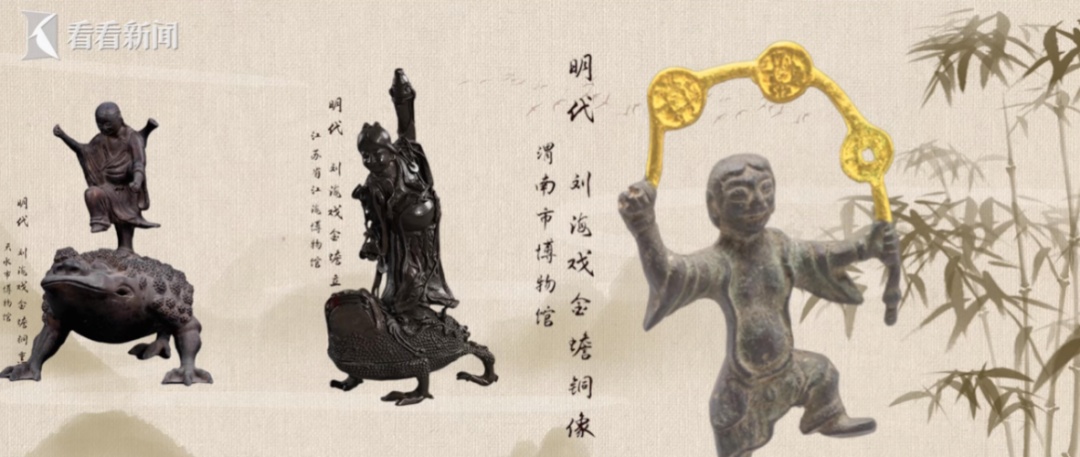 看看新闻
明代 刘海戏金蟾铜
天水市博物馆
明代 刘海戏金蟾立
江苏省江海博物馆
明代 刘海戏金蟾铜像
渭南市博物馆